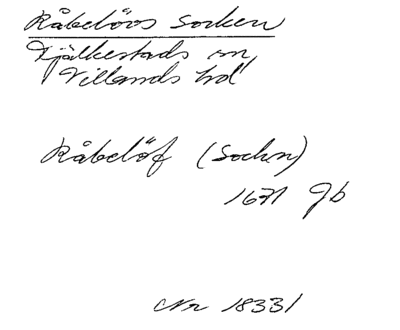 Råbelövs socken
Fjälkestads sn
Villands hd
Råbelöf (Sockn)
1671 Jb
Nr 18331